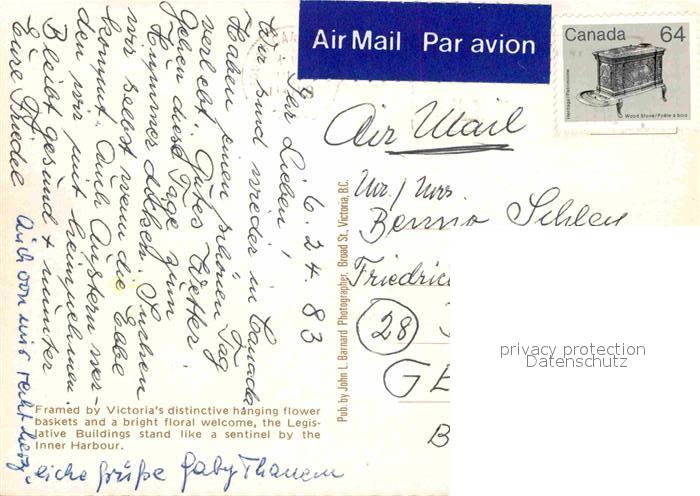 Air Mail Par avion
Canada 64
Heritage/Patrimoine
Wood Stove/Poêle à bois
Air Mail
Mr/Mrs.
Benno Schley
Friedric
28
GE
B
6.24.83
Ihr Lieben!
Wir sind wieder in Canada
Haben einen schönen Tag
verlebt. Gutes Wetter.
Gehen diese Tage zum
Hummer essen. Suchen
wir selbst wenn die Ebbe
kommt. Auch Austern wer-
den wir mit heimnehmen.
Bleibt gesund + munter
Eure Friedel
Auch von mir recht herz-
liche Grüße Gaby Thanem
Pub. by John L. Barnard Photographer, Broad St., Victoria, B.C.
Framed by Victoria's distinctive hanging flower
baskets and a bright floral welcome, the Legis-
lative Buildings stand like a sentinel by the
Inner Harbour.
privacy protection
Datenschutz